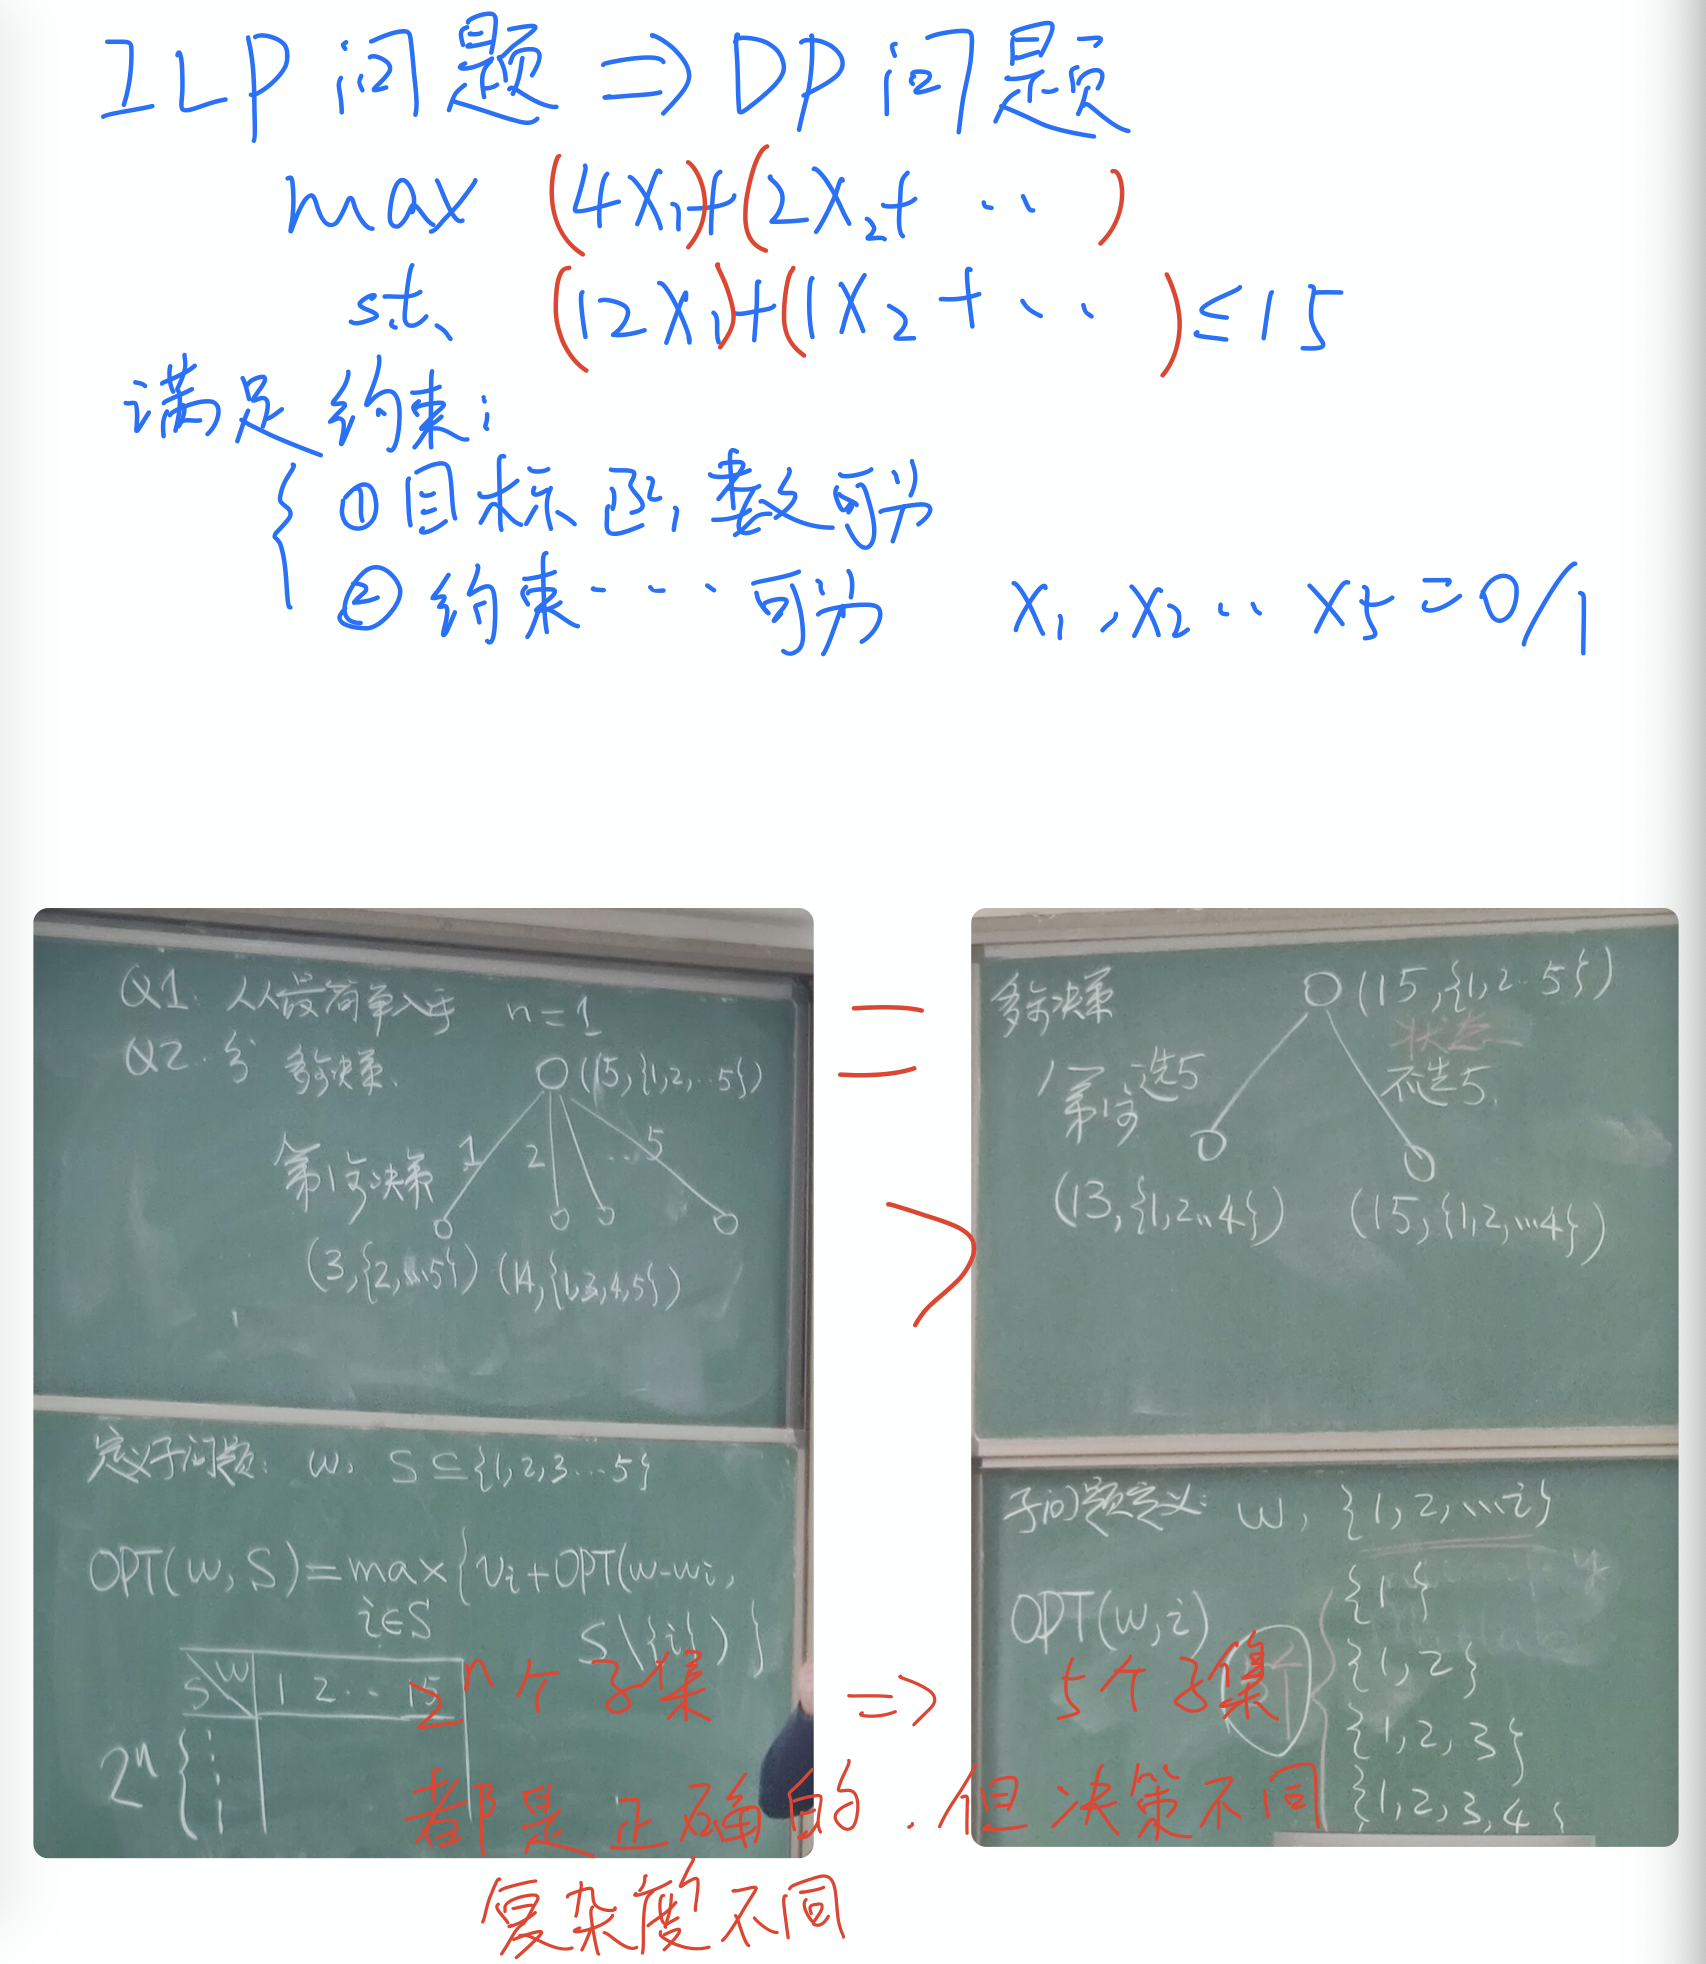 ILP问题 ⇒ DP问题
max (4X₁)+(2X₂+ ‥ )
s.t. (12X₁)+(1X₂+ ‥ )≤15
满足约束:
①目标函数可分
②约束…可分 X₁,X₂‥X5=0/1
Q1. 从最简单入手 n=1
Q2. 分 多步决策.
(15,{1,2,..5})
第1步决策 1 2 ... 5
(3,{2,...5}) (14,{1,3,4,5})
定义子问题: w, S⊆{1,2,3...5}
OPT(w,S)=max{vi+OPT(w-wi,
i∈S S\{i})}
S W 1 2 .. 15
2ⁿ
2ⁿ个子集
=
>
=>
多步决策 (15,{1,2..5})
状态
第1步 选5 不选5.
(13,{1,2..4}) (15,{1,2,...4})
子问题定义: w, {1,2,...i}
OPT(w,i) {1}
{1,2}
{1,2,3}
{1,2,3,4}
5个子集
都是正确的.但决策不同
复杂度不同